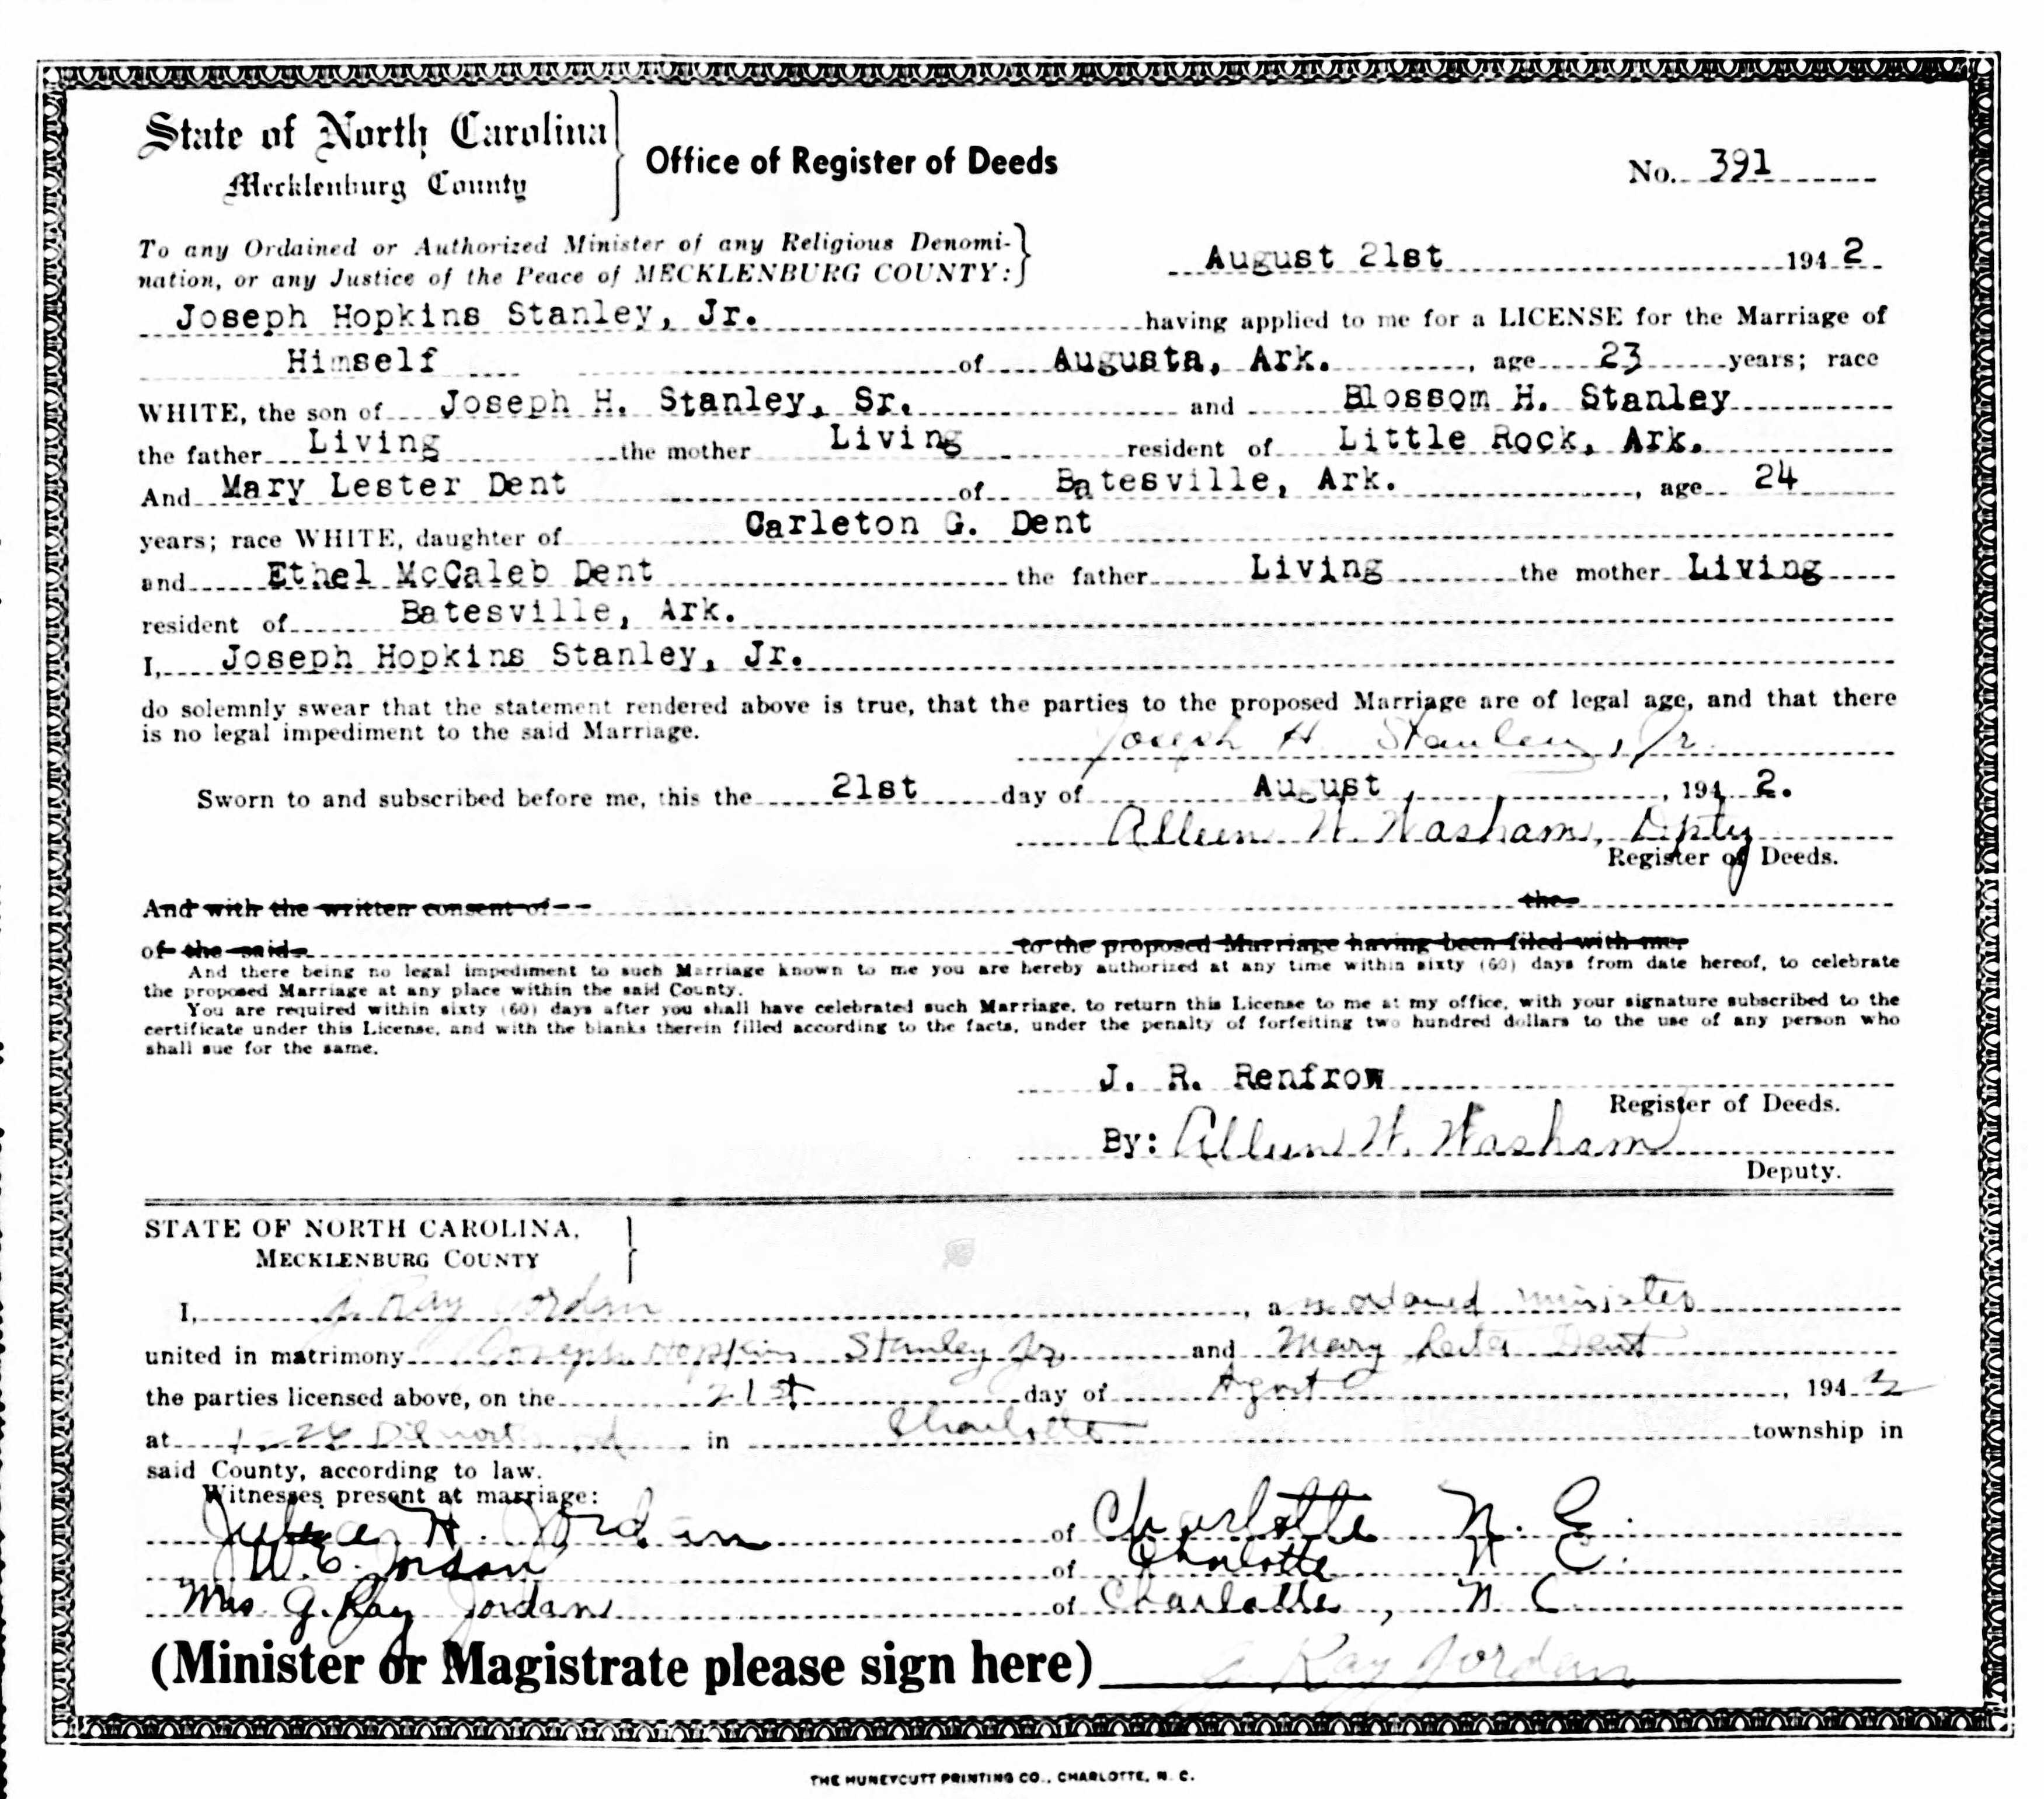 State of North Carolina
Mecklenburg County
Office of Register of Deeds
No. 391
To any Ordained or Authorized Minister of any Religious Denomi-
nation, or any Justice of the Peace of MECKLENBURG COUNTY:
August 21st 1942
Joseph Hopkins Stanley, Jr. having applied to me for a LICENSE for the Marriage of
Himself of Augusta, Ark. , age 23 years; race
WHITE, the son of Joseph H. Stanley, Sr. and Blossom H. Stanley
the father Living the mother Living resident of Little Rock, Ark.
And Mary Lester Dent of Batesville, Ark. , age 24
years; race WHITE, daughter of Carleton G. Dent
and Ethel McCaleb Dent the father Living the mother Living
resident of Batesville, Ark.
I, Joseph Hopkins Stanley, Jr.
do solemnly swear that the statement rendered above is true, that the parties to the proposed Marriage are of legal age, and that there
is no legal impediment to the said Marriage.
Joseph H. Stanley, Jr.
Sworn to and subscribed before me, this the 21st day of August , 1942.
Alleen W. Washam, Dpty
Register of Deeds.
And with the written consent of the
of the said to the proposed Marriage having been filed with me.
And there being no legal impediment to such Marriage known to me you are hereby authorized at any time within sixty (60) days from date hereof, to celebrate
the proposed Marriage at any place within the said County.
You are required within sixty (60) days after you shall have celebrated such Marriage, to return this License to me at my office, with your signature subscribed to the
certificate under this License, and with the blanks therein filled according to the facts, under the penalty of forfeiting two hundred dollars to the use of any person who
shall sue for the same.
J. R. Renfrow
Register of Deeds.
By: Alleen W. Washam
Deputy.
STATE OF NORTH CAROLINA,
MECKLENBURG COUNTY
I, G. Ray Jordan , a n ordained minister
united in matrimony Joseph Hopkins Stanley Jr. and Mary Lester Dent
the parties licensed above, on the 21st day of August , 1942
at in Charlotte township in
said County, according to law.
Witnesses present at marriage:
H. Jordan of Charlotte N. C.
W. C. Jordan of Charlotte N C.
Mrs. G. Ray Jordan of Charlotte, N C
(Minister or Magistrate please sign here) G. Ray Jordan
THE HUNEYCUTT PRINTING CO., CHARLOTTE, N. C.